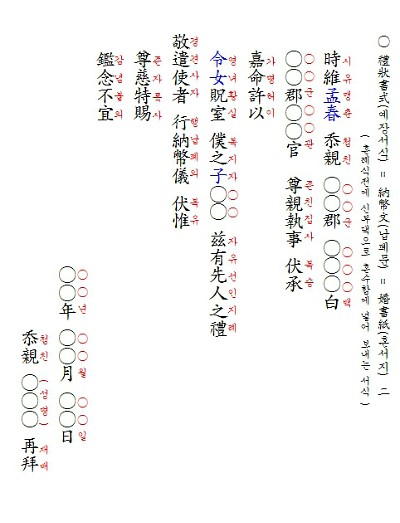 〇 禮狀書式(예장서식) = 納幣文(납폐문) = 婚書紙(혼서지) 二
( 혼례식전에 신부댁으로 혼수함에 넣어 보내는 서식 )
時維孟春 忝親 〇〇郡 〇〇〇白
시유맹춘 첨친 〇〇군 〇〇〇백
〇〇郡〇〇官 尊親執事 伏承
〇〇군〇〇관 존친집사 복승
嘉命許以
가명허이
令女貺室 僕之子〇〇 玆有先人之禮
영녀황실 복지자〇〇 자유선인지례
敬遣使者 行納幣儀 伏惟
경견사자 행납폐의 복유
尊慈特賜
존자특사
鑑念不宜
감념불의
〇〇年 〇〇月 〇〇日
〇〇년 〇〇월 〇〇일
忝親 〇〇〇 再拜
첨친 (성명) 재배